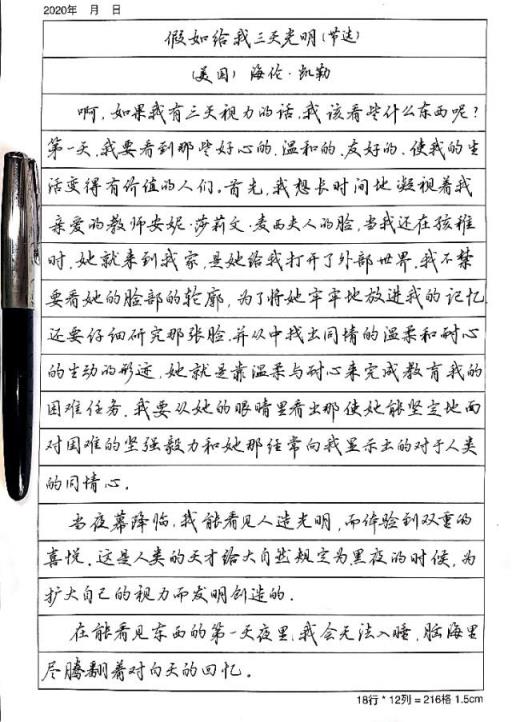 2020年 月 日
假如给我三天光明(节选)
(美国) 海伦·凯勒
啊,如果我有三天视力的话,我该看些什么东西呢?
第一天,我要看到那些好心的、温和的、友好的、使我的生
活变得有价值的人们。首先,我想长时间地凝视着我
亲爱的教师安妮·莎莉文·麦西夫人的脸,当我还在孩稚
时,她就来到我家,是她给我打开了外部世界。我不禁
要看她的脸部的轮廓,为了将她牢牢地放进我的记忆
还要仔细研究那张脸,并从中找出同情的温柔和耐心
的生动的形迹,她就是靠温柔与耐心来完成教育我的
困难任务。我要从她的眼睛里看出那使她能坚定地面
对困难的坚强毅力和她那经常向我显示出的对于人类
的同情心。
当夜幕降临,我能看见人造光明,而体验到双重的
喜悦。这是人类的天才给大自然规定为黑夜的时候,为
扩大自己的视力而发明创造的。
在能看见东西的第一天夜里,我会无法入睡,脑海里
尽腾翻着对白天的回忆。
18行*12列=216格 1.5cm